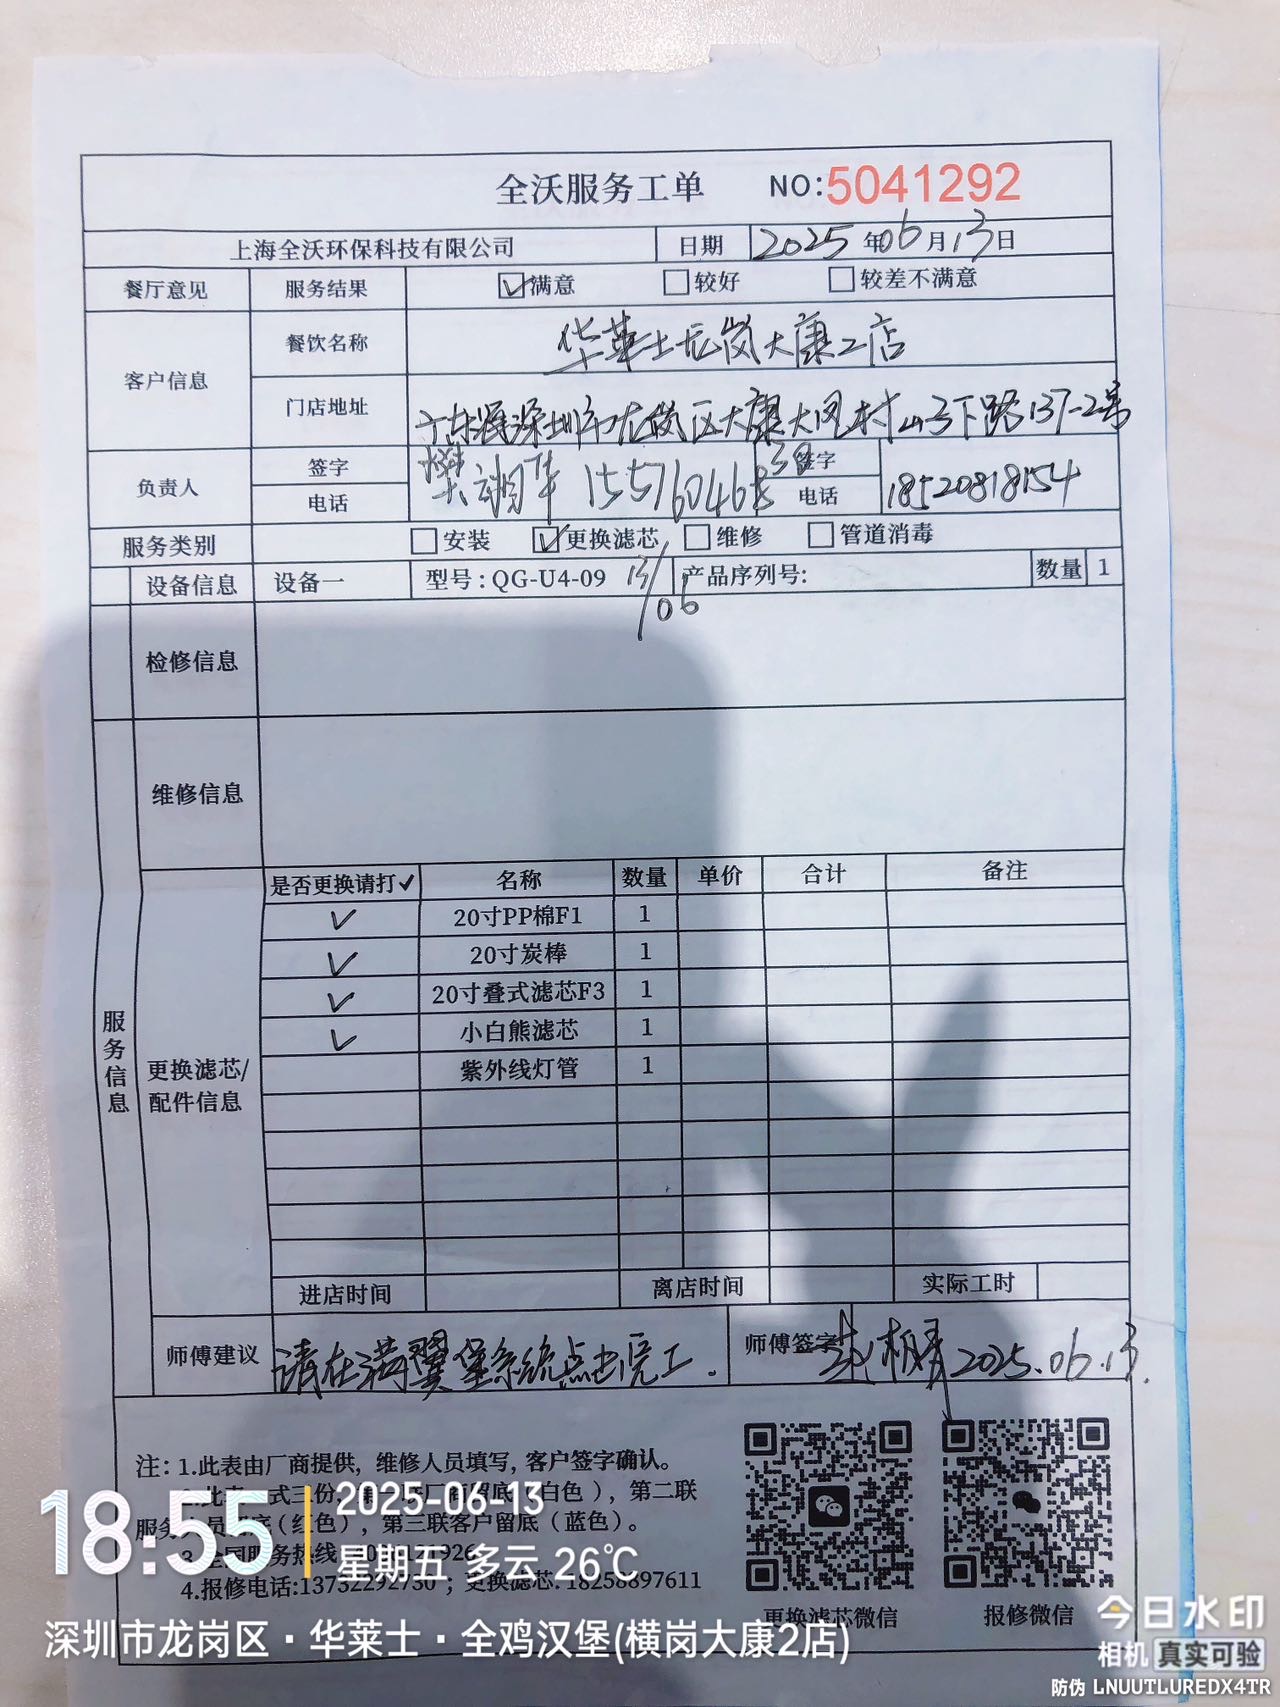 全沃服务工单 NO:5041292
上海全沃环保科技有限公司 日期 2025年06月13日
餐厅意见 服务结果 ☑满意 □较好 □较差不满意
客户信息 餐饮名称 华莱士龙岗大康2店
门店地址 广东深圳市龙岗区大康大凤村山子下路137-2号
负责人 签字 樊湖华 签字
电话 电话 18520818154
服务类别 □安装 ☑更换滤芯 □维修 □管道消毒
设备信息 设备一 型号:QG-U4-09 13/06 产品序列号: 数量 1
检修信息
维修信息
服务信息
更换滤芯/配件信息
是否更换请打✓ 名称 数量 单价 合计 备注
✓ 20寸PP棉F1 1
✓ 20寸炭棒 1
✓ 20寸叠式滤芯F3 1
✓ 小白熊滤芯 1
紫外线灯管 1
进店时间 离店时间 实际工时
师傅建议 请在满翼堡系统点击完工. 师傅签字 2025.06.13.
注: 1.此表由厂商提供, 维修人员填写, 客户签字确认。
(白色), 第二联
服务人员留底(红色), 第三联客户留底(蓝色)。
3.全国服务热线
4.报修电话:13732292730; 更换滤芯. 18258897611
更换滤芯微信 报修微信
18:55 2025-06-13
星期五 多云 26℃
深圳市龙岗区·华莱士·全鸡汉堡(横岗大康2店)
今日水印
相机 真实可验
防伪 LNUUTLUREDX4TR